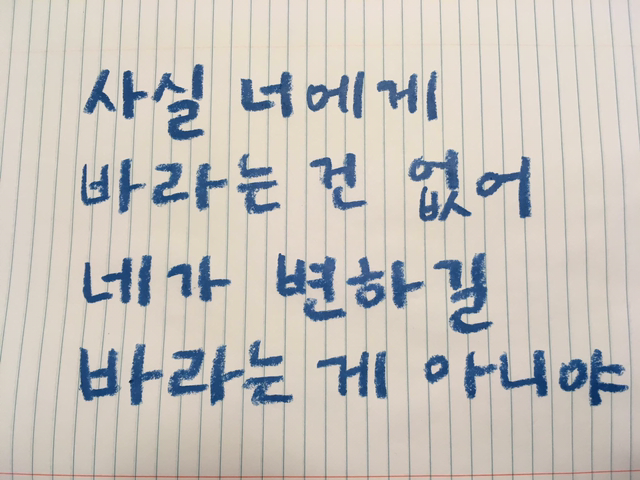 사실 너에게
바라는 건 없어
네가 변하길
바라는 게 아니야